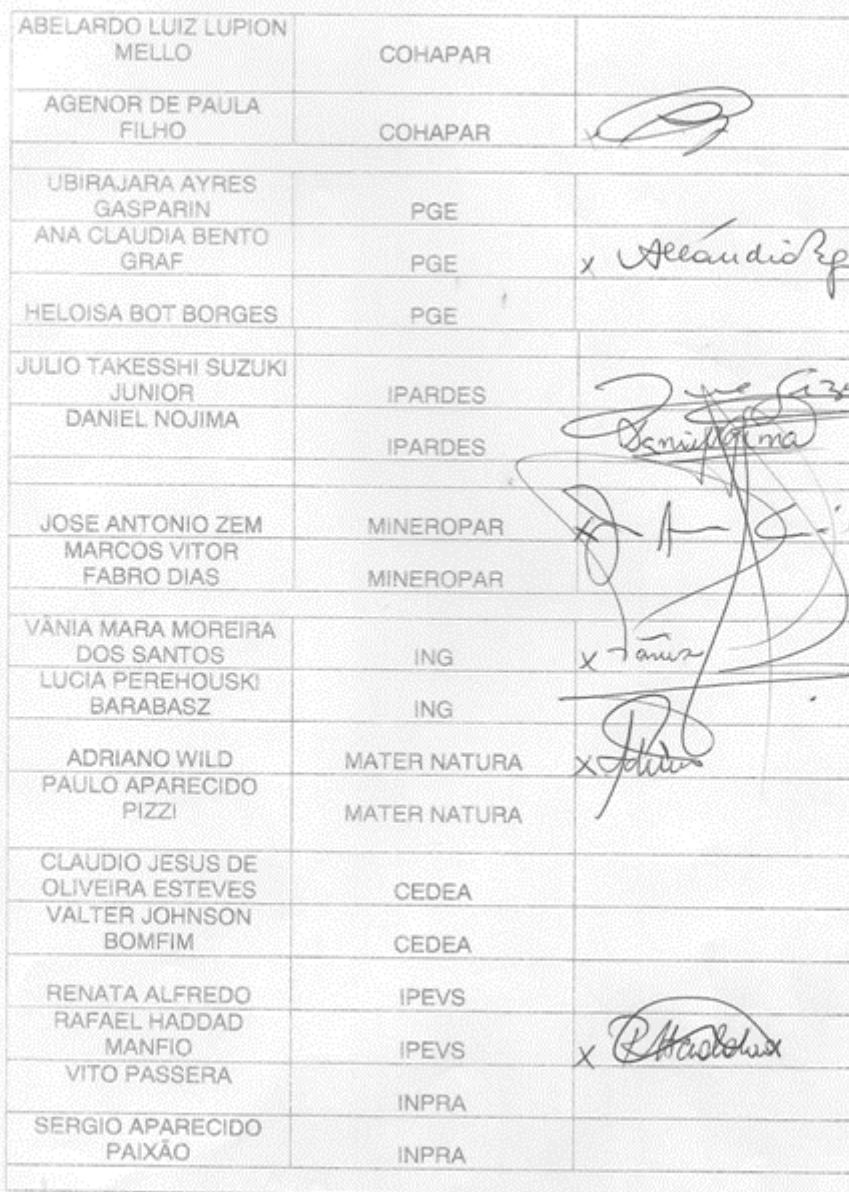 ABELARDO LUIZ LUPION
MELLO COHAPAR
AGENOR DE PAULA
FILHO COHAPAR x
UBIRAJARA AYRES
GASPARIN PGE
ANA CLAUDIA BENTO
GRAF PGE x
HELOISA BOT BORGES PGE
JULIO TAKESSHI SUZUKI
JUNIOR IPARDES
DANIEL NOJIMA
IPARDES
JOSE ANTONIO ZEM MINEROPAR x
MARCOS VITOR
FABRO DIAS MINEROPAR
VÂNIA MARA MOREIRA
DOS SANTOS ING x Vânia
LUCIA PEREHOUSKI
BARABASZ ING
ADRIANO WILD MATER NATURA x
PAULO APARECIDO
PIZZI MATER NATURA
CLAUDIO JESUS DE
OLIVEIRA ESTEVES CEDEA
VALTER JOHNSON
BOMFIM CEDEA
RENATA ALFREDO IPEVS
RAFAEL HADDAD
MANFIO IPEVS x
VITO PASSERA
INPRA
SERGIO APARECIDO
PAIXÃO INPRA